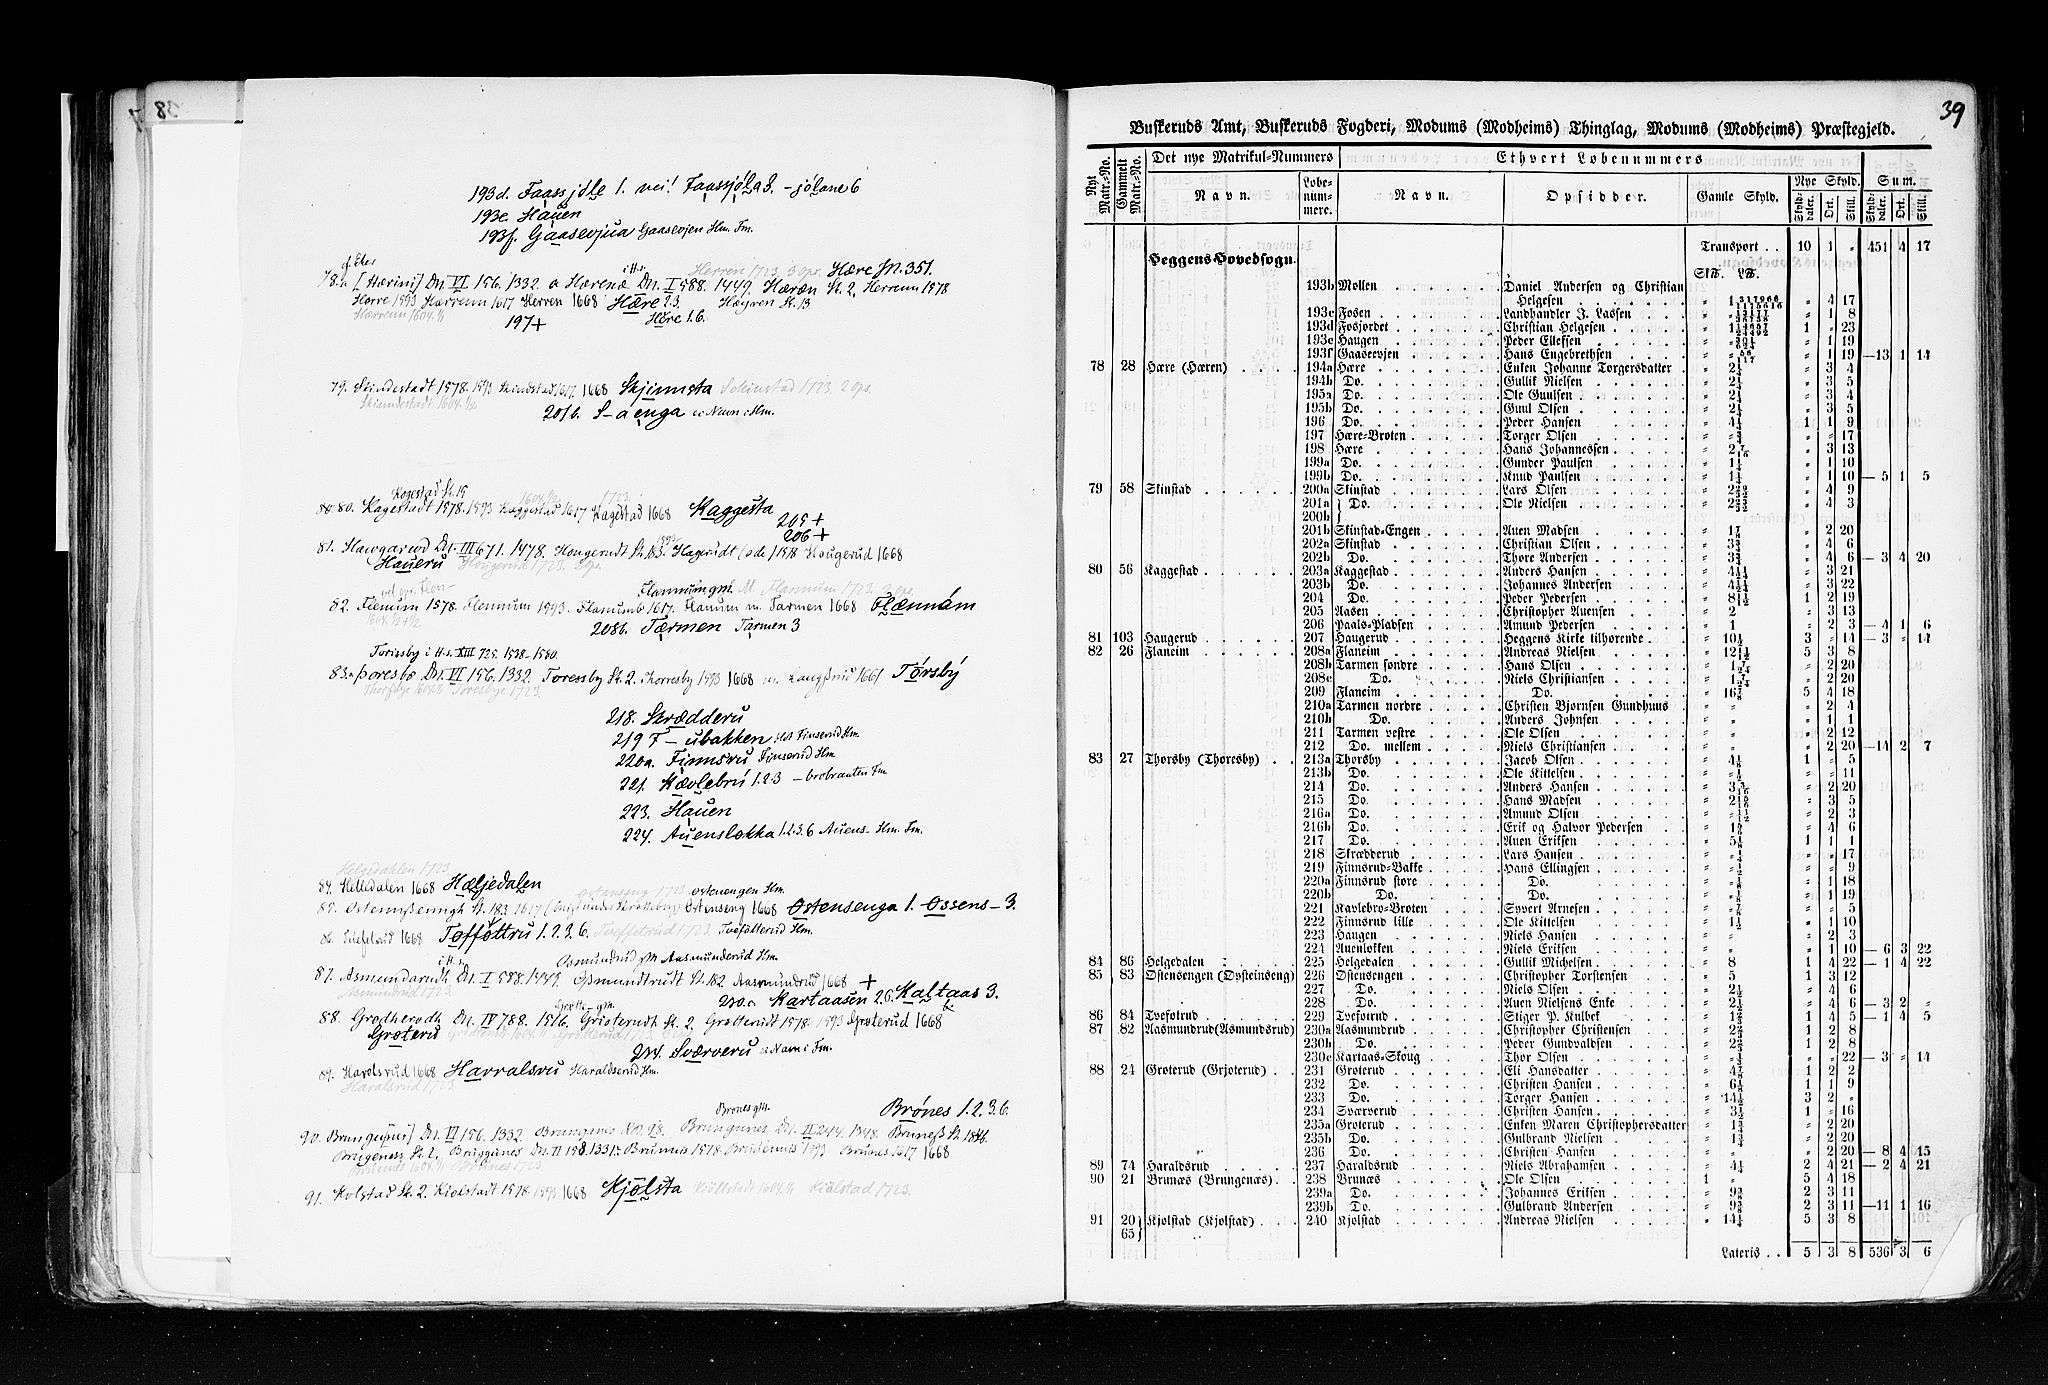 38
193d. Faassjole 1. vei! Faassjola 3. -jolane 6
193e. Hauen
193f. Gaasevjua Gaasevjen Hm. Fm.
Herren 1723. 3 gr. Hære JN. 351.
78. a [Hærini] Dn. VI 156. 1332. a Hærenæ Dn. I 588. 1449. Hæræn St. 2. Herrum 1578
Horre 1593 Harrem 1617 Herren 1668 Hære 2.3. Høgren St. 13
Hærrem 1604. 1/1 197+ Høre 1.6.
79. Skindestadt 1578. 1593 Skindstad 1617. 1668 Skjinnsta Schinstad 1723. 2 gr.
Skiendestadt 1604. 1/1 201b. S-aenga
Kogestad St. 15
80. Kagestadt 1578. 1593 Kaggestad 1617 Kagestad 1668 Kaggesta
205 +
206 +
81. Hawgarwd Dn. III 671. 1478. Hougerudt St. 183. Hagerudt (ode) 1578 Hougerud 1668
Haueru Hougerud 1723. 2 gr.
82. Flenum 1578. Flennum 1593. Flanumb 1617. Flanum m. Tarmen 1668 Flænnám
208b. Tærmen Tarmen 3
Torissby i H.s. XIII 725. 1528-1580.
83. a Þoresbø Dn. VI 156. 1332. Toressby St. 2. Thorresby 1593 1668 m. Langßrud 1661 Tørsbý
Toresbye 1723.
218. Skrædderu
219 F-ubakken
220a. Finnsru Finserud Hm.
221. Kævlebru 1.2.3 -brobraaten Fm
223. Hauen
224. Auensløkka 1.2.3.6 Auens- Hm. Fm.
Helgedahlen 1723.
84. Helledalen 1668 Hæljedalen
85. Ostennßenngh St. 183 1617 Ostenseng 1668 Ostensenga 1. Ossens- 3.
86. Tuefetrud 1668 Toffottru 1.2.3.6. Tveffetrud 1723. Tvefötterud Hm.
Osmundrud gM. Aasmunderud Hm.
87. Asmundarudh Dn. I 588. 1449. Osmundtrudt St. 182 Aasmundrud 1668 +
Asmundrud 1723 230. c Kartaasen 2.6. Kaltaas 3.
88. Grodherodh Dn. IV 788. 1516. Grioterudh St. 2. Grotterudt 1578. 1593 Groterud 1668
Groteru
234. Sværveru e Navn i Fm.
89. Harolsrud 1668 Harralsru Haraldserud Hm.
Haralsrud 1723.
Brones gM. Brónes 1.2.3.6.
90. Brungu[nes] Dn. VI 156. 1332. Brunganes Dn. II 244. 1348. Bruneß St. 184b.
Brugeness St. 2. Bruggunes Dn. II 158. 1331. Brumnis 1578. Brunes 1617 1668
91. Kolstad St. 2. Kiolstadt 1578. 1593 1668 Kjølsta Kiølstad 1604. 1/1 Kiølstad 1723.
39
Buskeruds Amt, Buskeruds Fogderi, Modums (Modheims) Thinglag, Modums (Modheims) Præstegjeld.
Nyt Matr.-No. Gammelt Matr.-No. Det nye Matrikul-Nummers Ethvert Løbenummers
Navn. Løbe-nummere. Navn. Opsidder. Gamle Skyld. Nye Skyld. Sum.
Skylddaler. Ort. Skill. Skylddaler. Ort. Skill.
Transport . . 10 1 „ 451 4 17
Heggens Hovedsogn.
193b Mollen Daniel Andersen og Christian
Helgesen „ 4 17
193c Fosen Landhandler J. Lassen „ 1 8
193d Fosjordet Christian Helgesen 1 „ 23
193e Haugen Peder Ellefsen „ 1 19
193f Gaaseevjen Hans Engebrethsen „ 1 19 —13 1 14
78 28 Hære (Hæren) 194a Hære Enken Johanne Torgersdatter 2¼ „ 3 4
194b Do. Gullik Nielsen 2¼ „ 3 5
195a Do. Ole Guulsen 2¼ „ 3 4
195b Do. Guul Olsen 2¼ „ 3 5
196 Do. Peder Hansen 4½ 1 1 9
197 Hære-Broten Torger Olsen „ „ 17
198 Hære Hans Johannessen „ 3 13
199a Do. Gunder Paulsen „ 1 10
199b Do. Knud Paulsen „ 1 10 — 5 1 5
79 58 Skinstad 200a Skinstad Lars Olsen „ 4 9
201a Do. Ole Nielsen „ 4 3
200b
201b Skinstad-Engen Auen Madsen „ 2 20
202a Skinstad Christian Olsen „ 4 6
202b Do. Thore Andersen „ 4 6 — 3 4 20
80 56 Kaggestad 203a Kaggestad Anders Hansen „ 3 21
203b Do. Johannes Andersen „ 3 22
204 Do. Peder Pedersen 1 2 19
205 Aasen Christopher Auensen 2 „ 3 13
206 Paals-Pladsen Amund Pedersen 1 „ 2 3 — 4 1 6
81 103 Haugerud 207 Haugerud Heggens Kirke tilhørende 3 „ 14 — 3 „ 14
82 26 Flaneim 208a Flaneim Andreas Nielsen 5 3 8
208b Tarmen søndre Hans Olsen „ 2 20
208c Do. Niels Christiansen „ 2 20
209 Flaneim Do. 5 4 18
210a Tarmen nordre Christen Bjornsen Gundhuus „ „ 2 4
210b Do. Anders Johnsen „ „ 1 1
211 Tarmen vestre Ole Olsen „ „ 2 12
212 Do. mellem Niels Christiansen „ „ 2 20 —14 2 7
83 27 Thorsby (Thoresby) 213a Thorsby Jacob Olsen 1 „ 5
213b Do. Ole Kittelsen „ „ 11
214 Do. Anders Hansen „ 2 20
215 Do. Hans Madsen „ 3 5
216a Do. Amund Olsen „ 2 3
216b Do. Erik og Halvor Pedersen „ 4 6
217 Do. Auen Eriksen 1 1 1
218 Skrædderud Lars Hansen „ „ 17
219 Finnsrud-Bakke Hans Ellingsen „ „ 9
220a Finnsrud store Do. „ 1 18
220b Do. Do. „ 1 19
221 Kavlebro-Broten Syvert Arnesen „ „ 5
222 Finnsrud lille Ole Kittelsen „ 1 10
223 Haugen Niels Hansen „ „ 2 3
224 Auenløkken Niels Eriksen „ „ 1 10 — 6 3 22
84 86 Helgedalen 225 Helgedalen Gullik Michelsen 8 1 4 22 — 1 4 22
85 83 Ostensengen (Oysteinseng) 226 Ostensengen Christopher Torstensen 5 1 3 12
227 Do. Niels Olsen „ 4 6
228 Do. Auen Nielsens Enke „ 4 6 — 3 2 „
86 84 Tvefotrud 229 Tvefotrud Stiger P. Kulbek 1 4 5 — 1 4 5
87 82 Aasmundrud (Asmundsrud) 230a Aasmundrud Christopher Christensen 1 2 8
230b Do. Peder Gundvaldsen 1 2 8
230c Kartaas-Skoug Thor Olsen „ „ 22 — 3 „ 14
88 24 Groterud (Grjoterud) 231 Groterud Eli Hansdatter 1 2 2
232 Do. Christen Hansen 1 1 9
233 Do. Torger Hansen 3 2 „
234 Sværverud Christen Hansen 1 „ 16
235a Groterud Enken Maren Christophersdatter „ 2 20
235b Do. Gulbrand Nielsen „ 2 20
236 Do. Christen Hansen „ 2 20 — 8 4 15
89 74 Haraldsrud 237 Haraldsrud Niels Abrahamsen 2 4 21 — 2 4 21
90 21 Brunæs (Brungenæs) 238 Brunæs Ole Olsen 1 „ 5 4 18
239a Do. Johannes Eriksen 2 3 11
239b Do. Gulbrand Andersen 2 3 11 —11 1 16
91 20 Kjolstad (Kjolstad) 240 Kjolstad Andreas Nielsen 5 3 8
65
Lateris . . 5 3 8 536 3 6